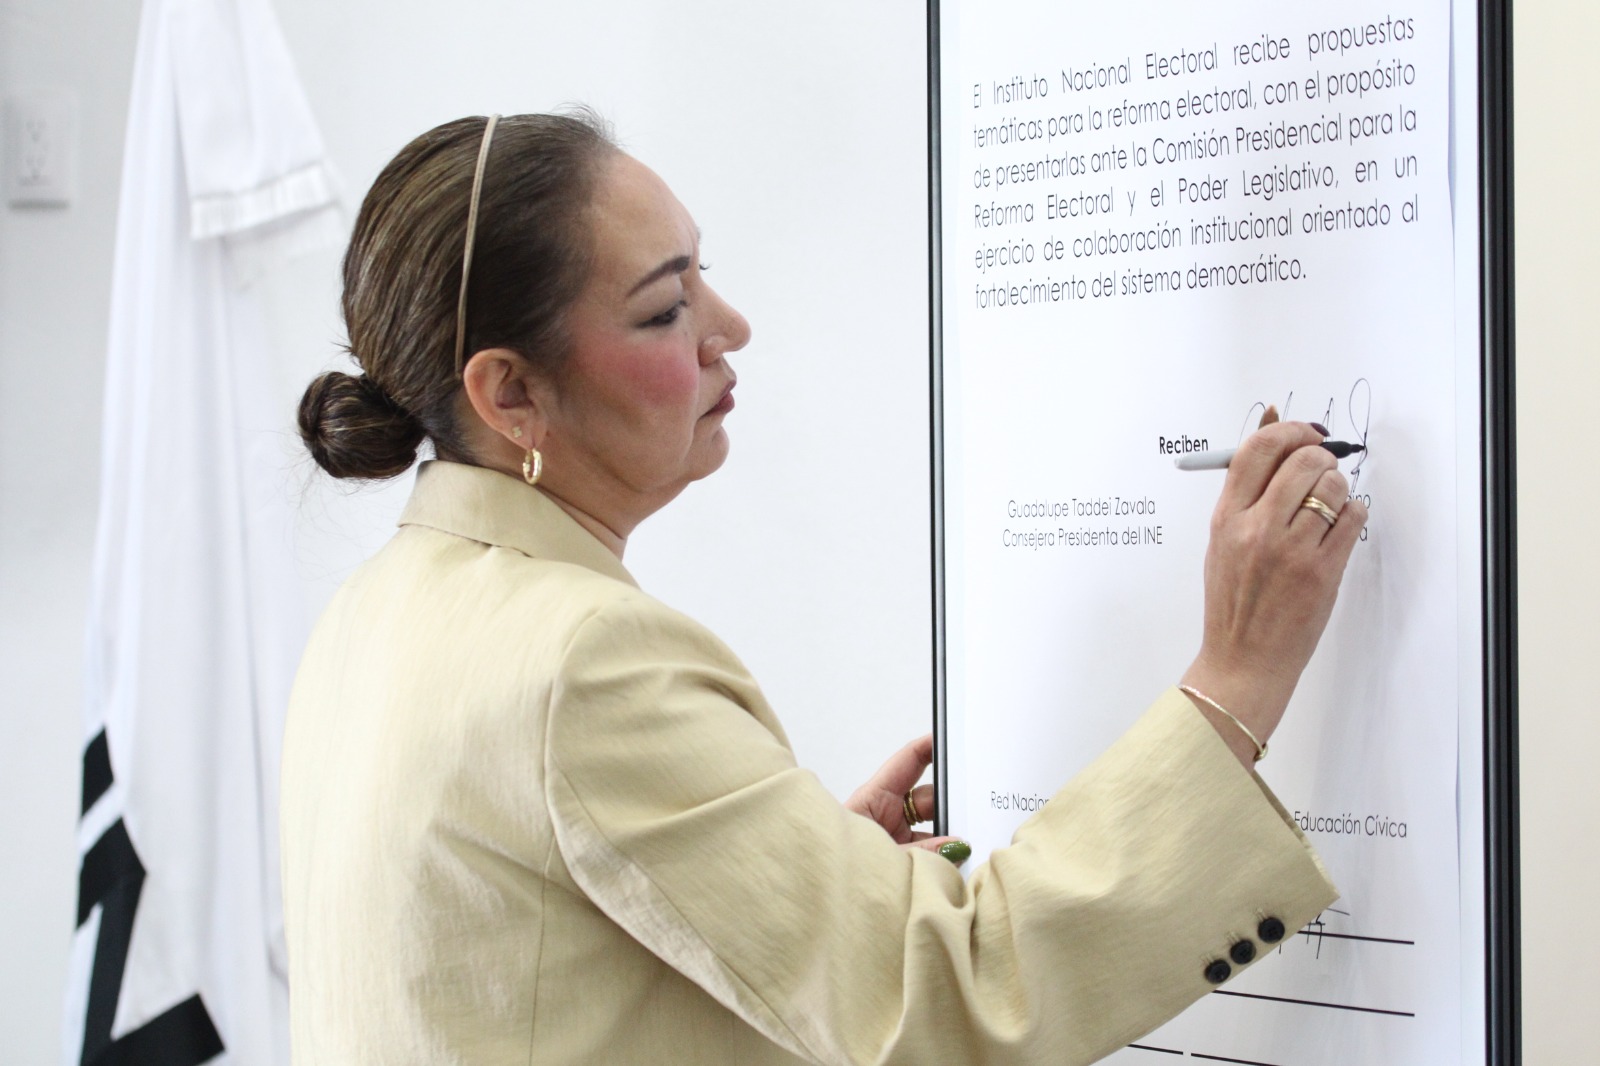 El Instituto Nacional Electoral recibe propuestas
temáticas para la reforma electoral, con el propósito
de presentarlas ante la Comisión Presidencial para la
Reforma Electoral y el Poder Legislativo, en un
ejercicio de colaboración institucional orientado al
fortalecimiento del sistema democrático.
Reciben
Guadalupe Taddei Zavala
Consejera Presidenta del INE
Red
Educación Cívica